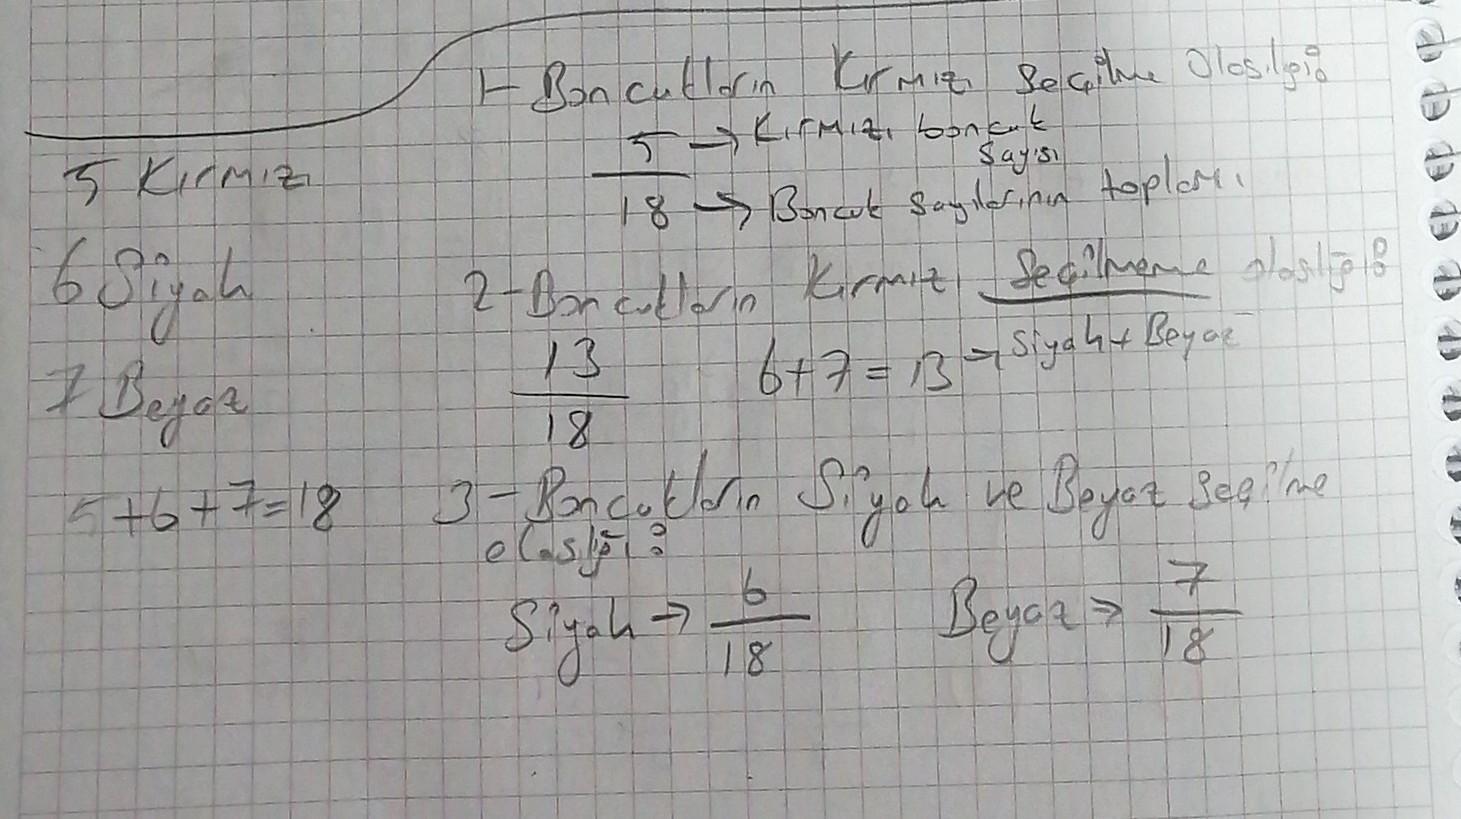 1- Boncukların Kırmızı Seçilme Olasılığı?
5 → Kırmızı boncuk
Sayısı
18 → Boncuk Sayılarının toplamı
5 Kırmızı
6 Siyah
7 Beyaz
5+6+7=18
2- Boncukların Kırmızı Seçilmeme olasılığı?
13
18
6+7=13 → Siyah + Beyaz
3- Boncukların Siyah ve Beyaz Seçilme
olasılığı?
Siyah → 6
18
Beyaz → 7
18